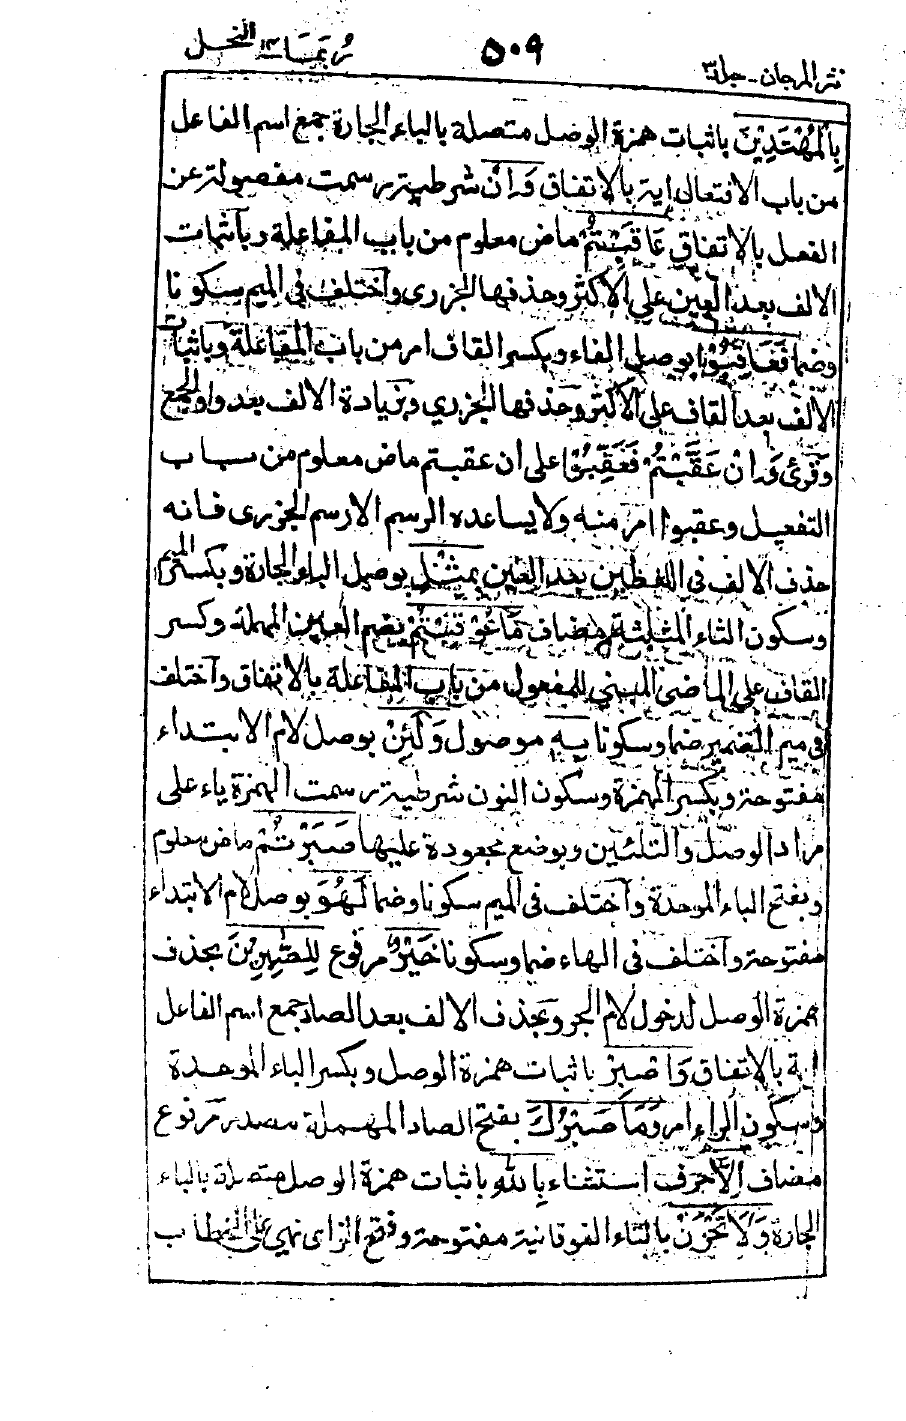 نثر المرجان - جلد ٣ ٥٠٩ ربما ١٤ النحل
بِالْمُهْتَدِيْنَ باثبات همزة الوصل متصلة بالباء الجارة جمع اسم الفاعل
من باب الافتعال اية بالاتفاق وَاِنْ شرطية رسمت مفصولة عن
الفعل بالاتفاق عَاقَبْتُمْ ماض معلوم من باب المفاعلة وباثبات
الالف بعد العين على الاكثر وحذفها الجزرى واختلف فى الميم سكونا
وضما فَعَاقِبُوْا بوصل الفاء وبكسر القاف امر من باب المفاعلة وباثبات
الالف بعد القاف على الاكثر وحذفها الجزرى وبزيادة الالف بعد واو الجمع
وقرئ وَاِنْ عَقَّبْتُمْ فَعَقِّبُوْا على ان عقبتم ماض معلوم من باب
التفعيل وعقبوا امر منه ولا يساعده الرسم الا رسم الجزرى فانه
حذف الالف فى اللفظين بعد العين بِمِثْلِ بوصل الباء الجارة وبكسر الميم
وسكون الثاء المثلثة مضاف مَا عُوْقِبْتُمْ بضم العين المهملة وكسر
القاف على الماضى المبنى للمفعول من باب المفاعلة بالاتفاق واختلف
فى ميم الضمير ضما وسكونا بِهٖ موصول وَلَئِنْ بوصل لام الابتداء
مفتوحة وبكسر الهمزة وسكون النون شرطية رسمت الهمزة ياء على
مراد الوصل والتليين وبوضع مجعودة عليها صَبَرْتُمْ ماض معلوم
وبفتح الباء الموحدة واختلف فى الميم سكونا وضما لَهُوَ بوصل لام الابتداء
مفتوحة واختلف فى الهاء ضما وسكونا خَيْرٌ مرفوع لِلصّٰبِرِيْنَ بحذف
همزة الوصل لدخول لام الجر وبحذف الالف بعد الصاد جمع اسم الفاعل
اية بالاتفاق وَاصْبِرْ باثبات همزة الوصل وبكسر الباء الموحدة
وسكون الراء امر وَمَا صَبْرُكَ بفتح الصاد المهملة مصدر مرفوع
مضاف اِلَّا حرف استثناء بِاللّٰهِ باثبات همزة الوصل متصلة بالباء
الجارة وَلَا تَحْزَنْ بالتاء الفوقانية مفتوحة وفتح الزاى نهى على الخطاب